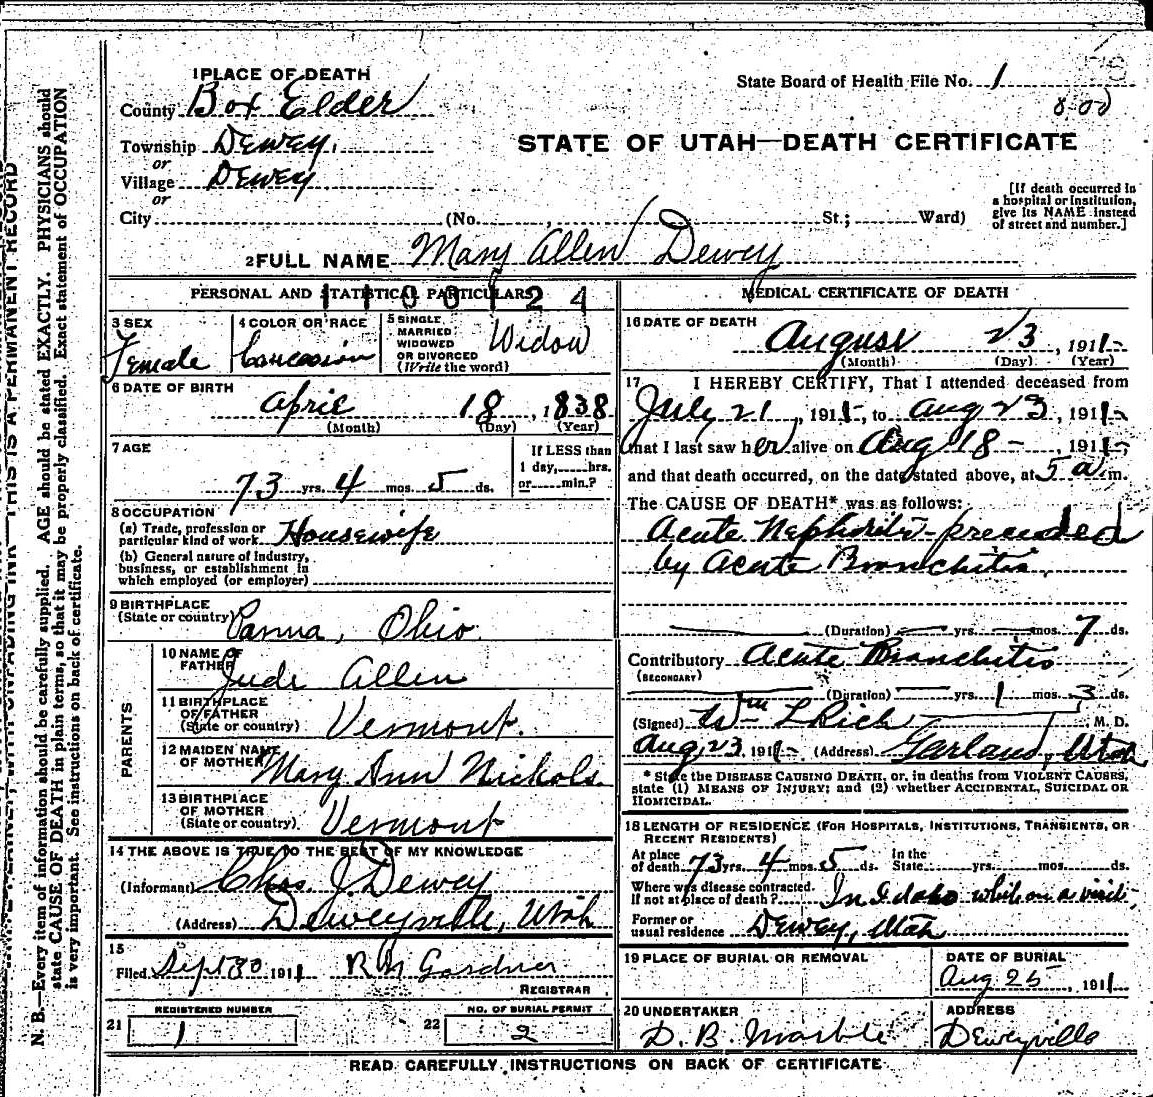 1 PLACE OF DEATH
County Box Elder
Township Dewey
or
Village Dewey
or
City (No. , St.; Ward)
State Board of Health File No. 1
8.00
STATE OF UTAH—DEATH CERTIFICATE
[If death occurred in
a hospital or institution,
give its NAME instead
of street and number.]
2 FULL NAME Mary Allen Dewey
PERSONAL AND STATISTICAL PARTICULARS
1100124
3 SEX
Female
4 COLOR OR RACE
5 SINGLE,
MARRIED
WIDOWED
OR DIVORCED
(Write the word)
Widow
6 DATE OF BIRTH
April 18, 1838
(Month) (Day) (Year)
7 AGE
73 yrs. 4 mos. 5 ds.
If LESS than
1 day, hrs.
or min.?
8 OCCUPATION
(a) Trade, profession or
particular kind of work Housewife
(b) General nature of Industry,
business, or establishment in
which employed (or employer)
9 BIRTHPLACE
(State or country) Ohio
PARENTS
10 NAME OF
FATHER
Jude Allen
11 BIRTHPLACE
OF FATHER
(State or country)
Vermont.
12 MAIDEN NAME
OF MOTHER
Mary Ann Nickols.
13 BIRTHPLACE
OF MOTHER
(State or country)
Vermont
14 THE ABOVE IS TRUE TO THE BEST OF MY KNOWLEDGE
(Informant) Chas. J. Dewey
(Address) Deweyville, Utah
15
Filed Sept 30 1911 R N Gardner
REGISTRAR
REGISTERED NUMBER
21 1
NO. OF BURIAL PERMIT
22 2
MEDICAL CERTIFICATE OF DEATH
16 DATE OF DEATH
August 23, 1911-
(Month) (Day) (Year)
17 I HEREBY CERTIFY, That I attended deceased from
July 21, 1911-, to Aug 23, 1911-,
that I last saw her alive on Aug 18-, 1911-,
and that death occurred, on the date stated above, at 5 a.m.
The CAUSE OF DEATH* was as follows:
Acute Nephritis-preceded
by Acute Bronchitis.
(Duration) yrs. mos. 7 ds.
Contributory Acute Bronchitis
(SECONDARY)
(Duration) yrs. 1 mos. 3 ds.
(Signed) Wm L Rich, M. D.
Aug 23 1911- (Address) Garland, Utah
* State the DISEASE CAUSING DEATH, or, in deaths from VIOLENT CAUSES,
state (1) MEANS OF INJURY; and (2) whether ACCIDENTAL, SUICIDAL OR
HOMICIDAL.
18 LENGTH OF RESIDENCE (FOR HOSPITALS, INSTITUTIONS, TRANSIENTS, OR
RECENT RESIDENTS)
At place
of death 73 yrs. 4 mos. 5 ds. In the
State yrs. mos. ds.
Where was disease contracted.
If not at place of death? In Idaho while on a visit,
Former or
usual residence Dewey, Utah
19 PLACE OF BURIAL OR REMOVAL
DATE OF BURIAL
Aug 25, 1911
20 UNDERTAKER
D. B. Marble
ADDRESS
Deweyville
READ CAREFULLY INSTRUCTIONS ON BACK OF CERTIFICATE
THIS IS A PERMANENT RECORD
N. B.—Every item of information should be carefully supplied. AGE should be stated EXACTLY. PHYSICIANS should
state CAUSE OF DEATH in plain terms, so that it may be properly classified. Exact statement of OCCUPATION
is very important. See instructions on back of certificate.